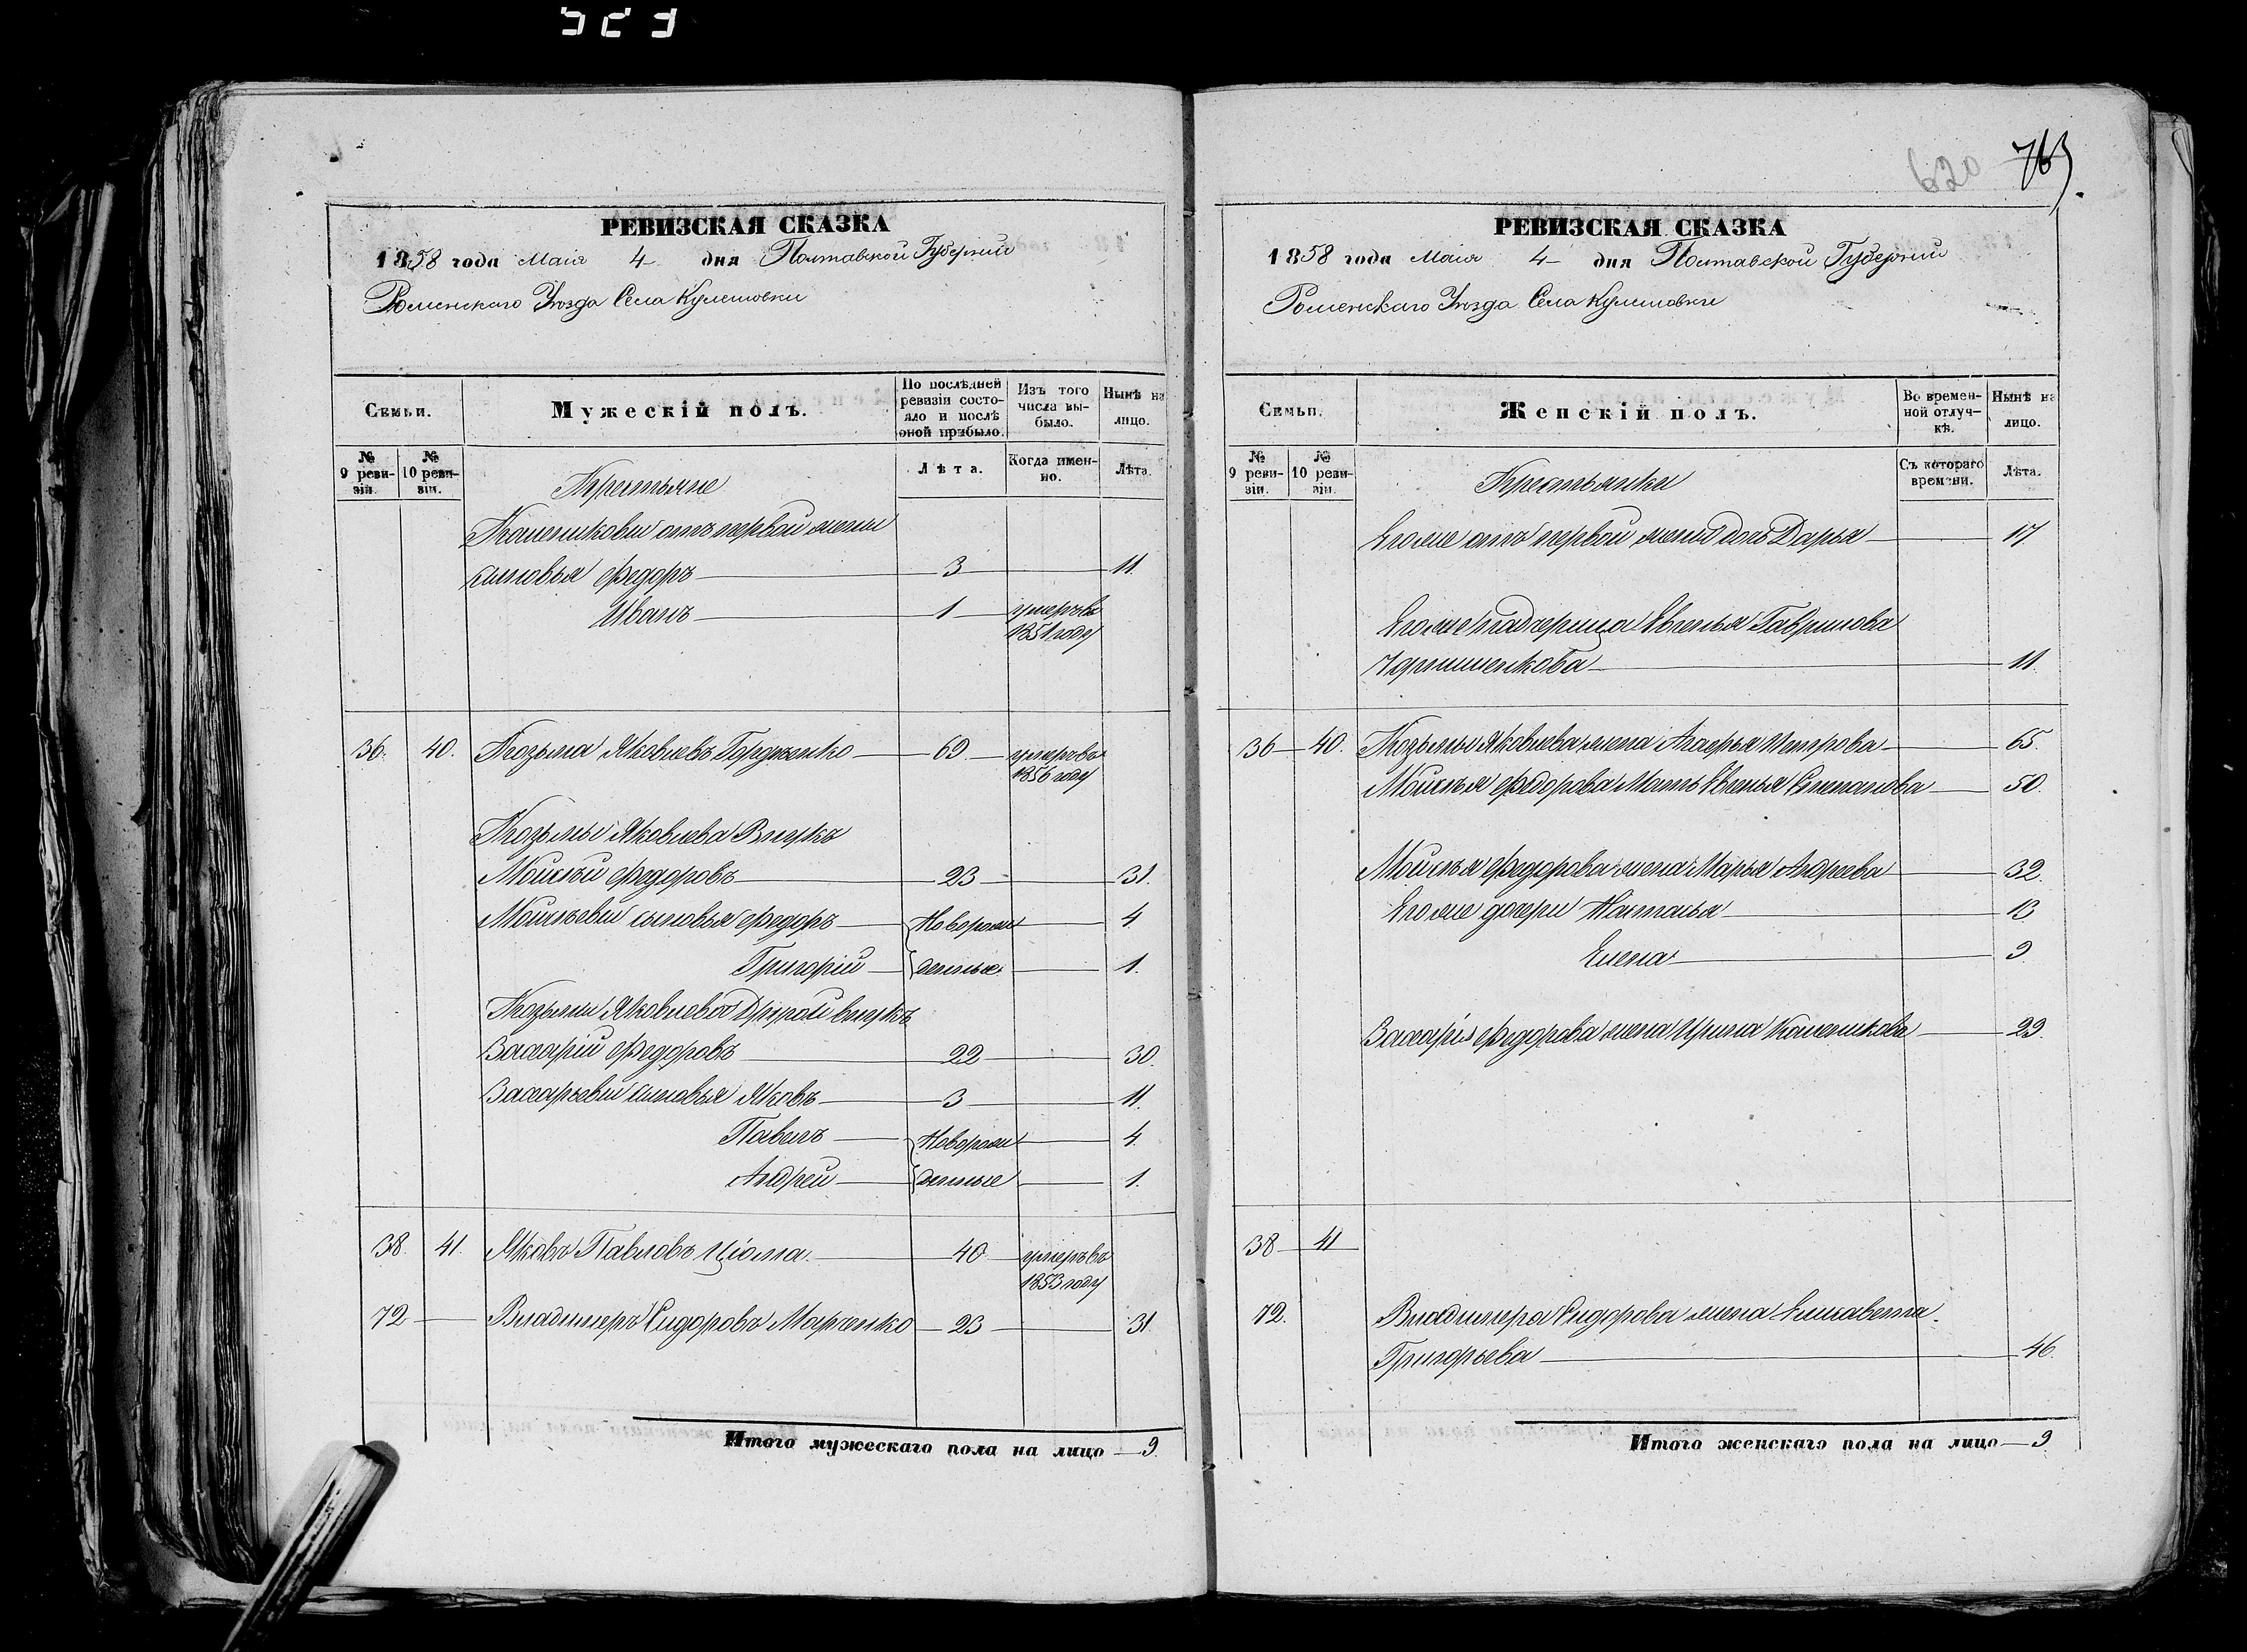 620 763
РЕВИЗСКАЯ СКАЗКА
1858 года Маія 4 дня Полтавской Губерніи
Роменскаго Уѣзда Села Кулешовки
Семьи.
Мужескій полъ.
По послѣдней ревизіи состояло и послѣ оной прибыло.
Изъ того числа выбыло.
Нынѣ на лицо.
№ 9 ревизіи.
№ 10 ревизіи.
Лѣта.
Когда именно.
Лѣта.
Крестьяне
отъ первой жены
сыновья Федоръ 3 11.
Иванъ 1 умеръ въ 1851 году
36. 40. Козьма Яковлевъ Гордженко 69 умеръ въ 1856 году
Козьмы Яковлева Внукъ
Мойсѣй Федоровъ 23 31.
Мойсѣевы сыновья Федоръ Новорож 4.
Григорій денные. 1.
Козьмы Яковлева Другой внукъ
Захарій Федоровъ 22 30.
Захарьевы сыновья Яковъ 3 11.
Павелъ Новорож 4.
Андрей денные 1.
38. 41. Яковъ Павловъ Цюма. 40 умеръ въ 1853 году
72 Владимеръ Сидоровъ Марченко 23 31.
Итого мужескаго пола на лицо 9.
РЕВИЗСКАЯ СКАЗКА
1858 года Маія 4 дня Полтавской Губерніи
Роменскаго Уѣзда Села Кулешовки
Семьи.
Женскій полъ.
Во временной отлучкѣ.
Нынѣ на лицо.
№ 9 ревизіи.
№ 10 ревизіи.
Съ котораго времени.
Лѣта.
Крестьянки
Егоже отъ первой жены дочь Дарья 17
Егоже падчерица Евгенья Гаврилова
11.
36 40. Козьмы Яковлева жена Агафья Петрова 65.
Мойсѣя Федорова Мать Евгенья Степанова 50.
Мойсѣя Федорова жена Марья Андреева 32.
Егоже дочери Настасья 13
Елена 9
Захарія Федорова жена Ирина 29.
38 41
72. Владимера Сидорова жена Елисавета
Григорьева 46.
Итого женскаго пола на лицо 9.